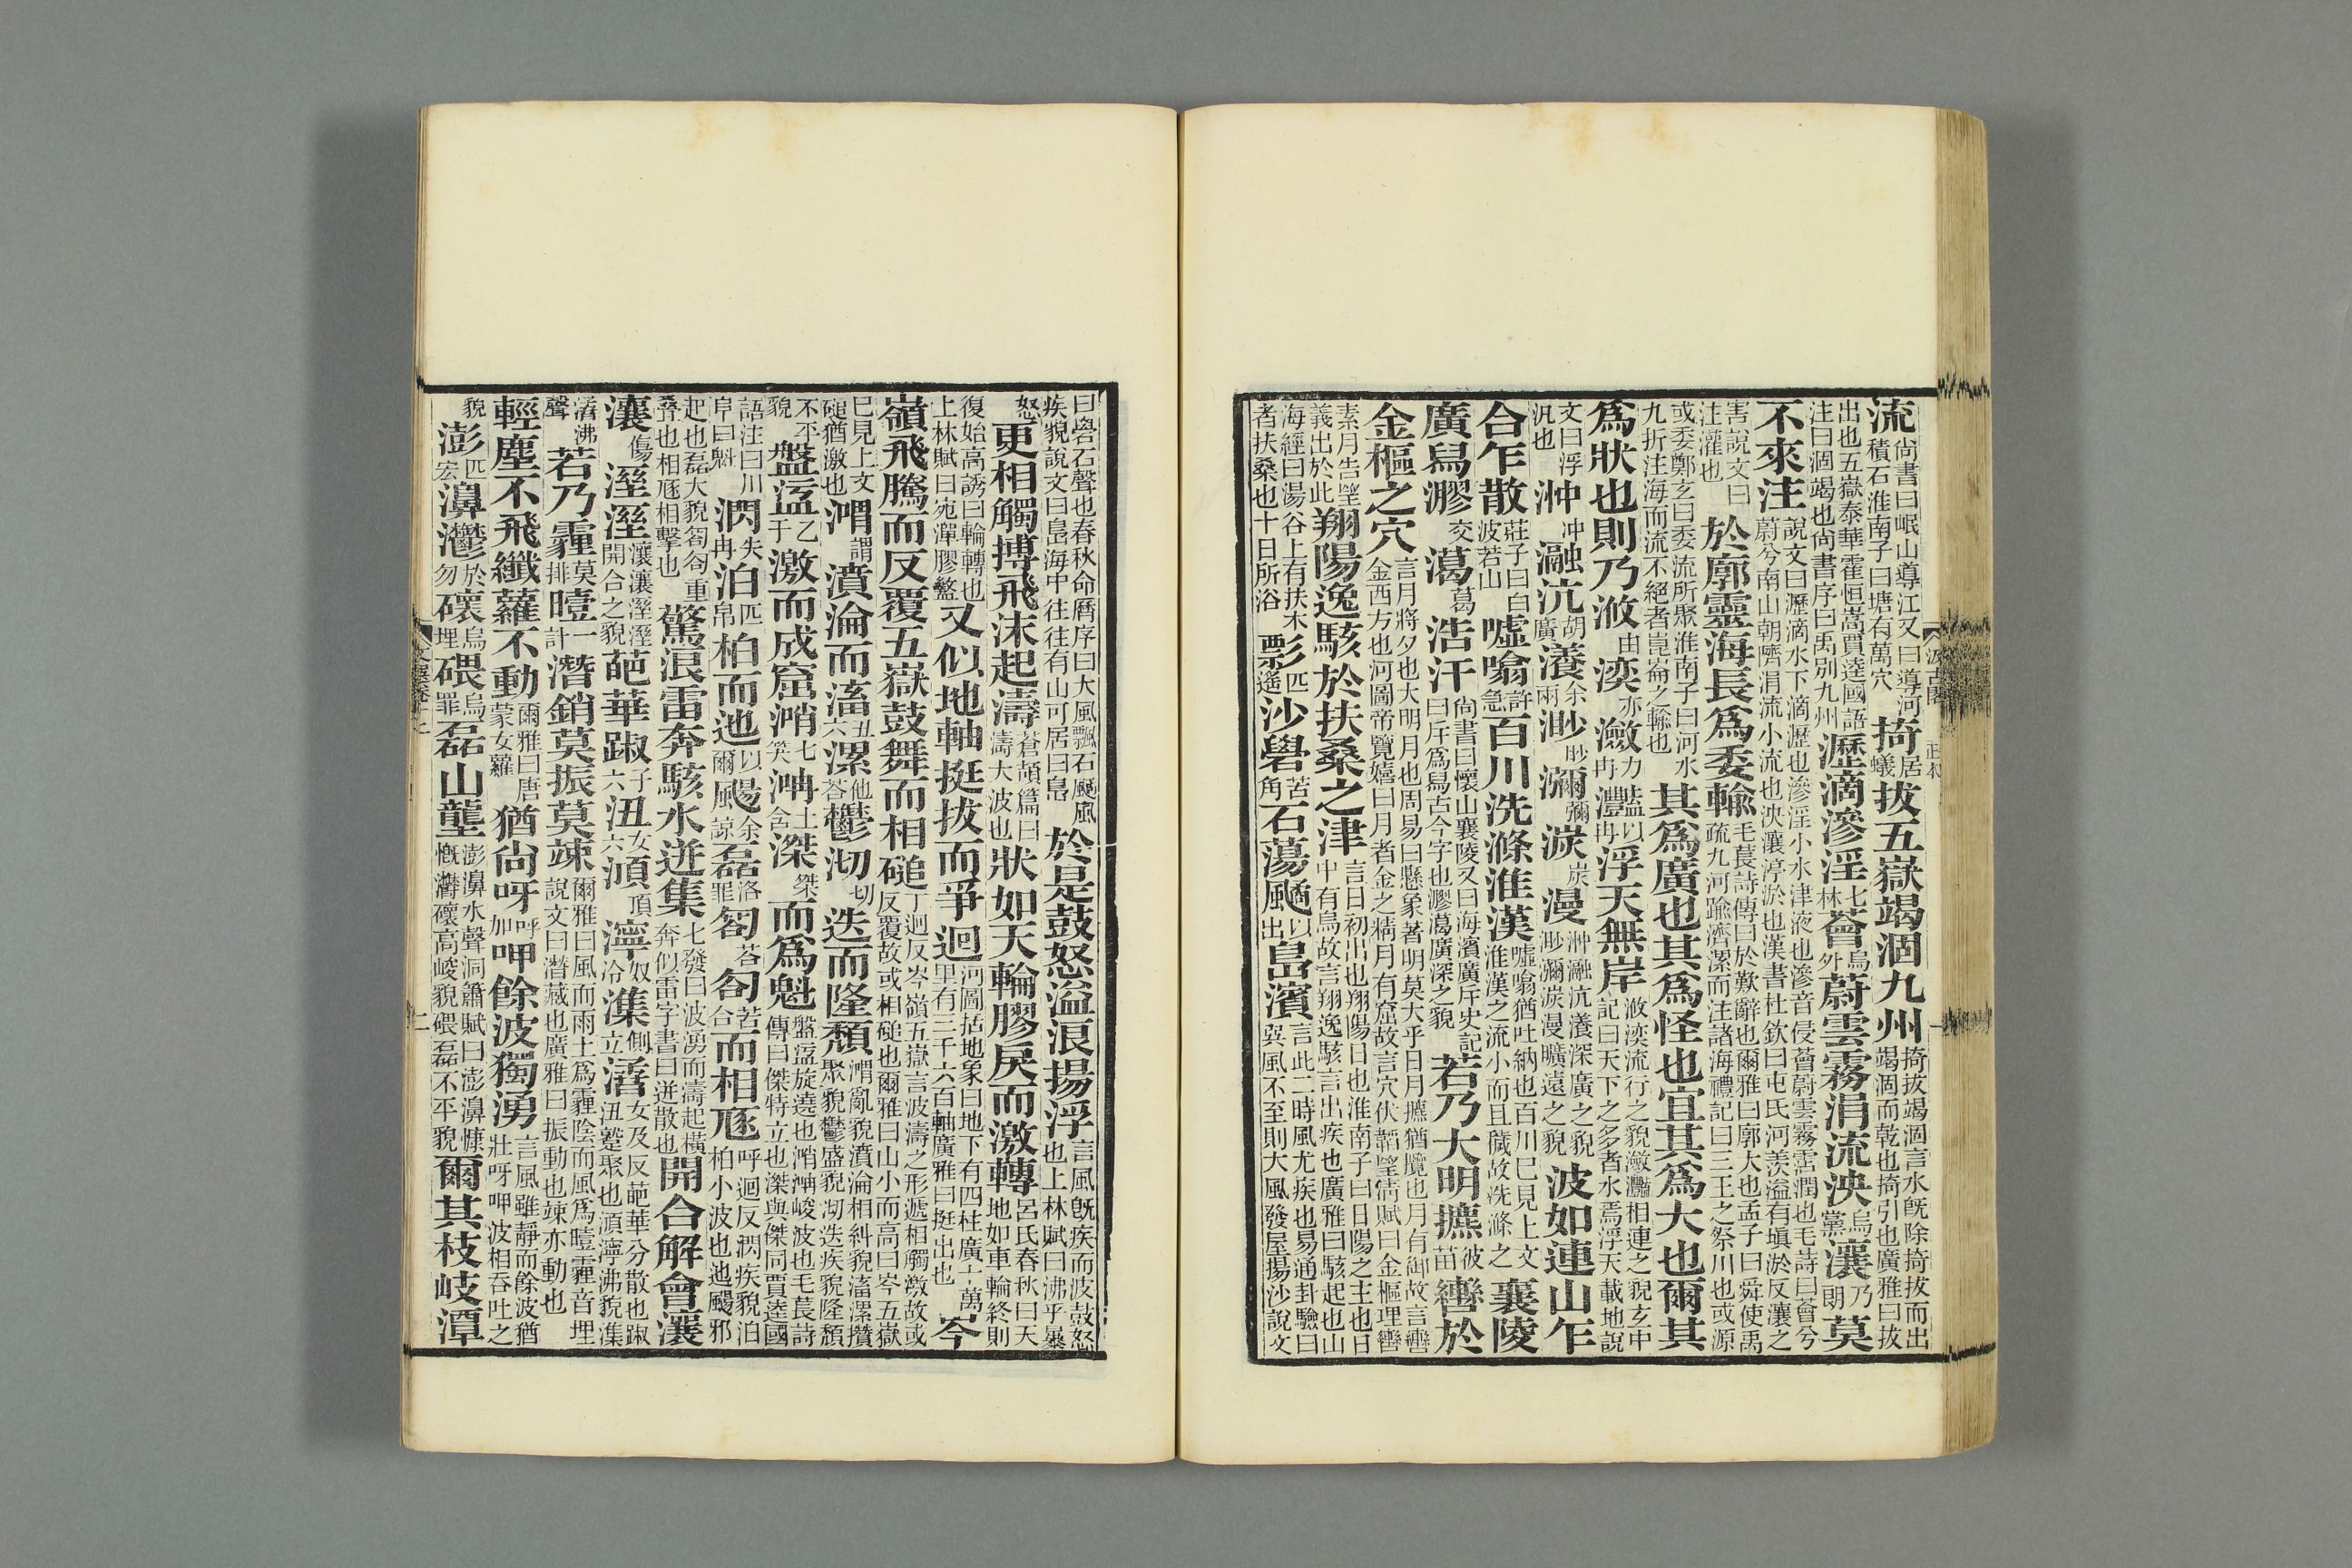 汲古閣　正本
流尚書曰岷山導江又曰導河積石淮南子曰塘有萬穴掎居蟻拔五嶽竭涸九州掎拔竭涸言水旣除掎拔而出竭涸而乾也掎引也廣雅曰拔
出也五嶽泰華霍恒嵩賈逵國語注曰涸竭也尚書序曰禹別九州瀝滴滲淫七林薈烏外蔚雲霧涓流泱烏黨瀼乃朗莫
不來注說文曰瀝滴水下滴瀝也滲淫小水津液也滲音侵薈蔚雲霧雲潤也毛詩曰薈兮蔚兮南山朝隮涓流小流也泱瀼渟淤也漢書杜欽曰屯氏河羨溢有塡淤反瀼之
害說文曰注灌也於廓靈海長爲委輸毛萇詩傳曰於歎辭也爾雅曰廓大也孟子曰舜使禹疏九河踰濟漯而注諸海禮記曰三王之祭川也或源
或委鄭玄曰委流所聚淮南子曰河水九折注海而流不絕者崑崙之輸也其爲廣也其爲怪也宜其爲大也爾其
爲狀也則乃浟由湙亦瀲力冉灩以冉浮天無岸浟湙流行之貌瀲灩相連之貌玄中記曰天下之多者水焉浮天載地說
文曰浮汎也浺冲瀜沆胡廣瀁余兩渺眇瀰彌湠炭漫浺瀜沆瀁深廣之貌渺瀰湠漫曠遠之貌波如連山乍
合乍散莊子曰白波若山噓噏許急百川洗滌淮漢噓噏猶吐納也百川已見上文淮漢之流小而且穢故洗滌之襄陵
廣舄㶀交㵧葛浩汗尚書曰懷山襄陵又曰海濱廣斥史記曰斥爲舄古今字也㶀㵧廣深之貌若乃大明㩱彼苗轡於
金樞之穴言月將夕也大明月也周易曰懸象著明莫大乎日月㩱猶攬也月有御故言轡金西方也河圖帝覽嬉曰月者金之精月有窟故言穴伏韜望淸賦曰金樞理轡
素月告望義出於此翔陽逸駭於扶桑之津言日初出也翔陽日也淮南子曰日陽之主也日中有烏故言翔逸駭言出疾也廣雅曰駭起也山
海經曰湯谷上有扶木者扶桑也十日所浴彯匹遙沙礐苦角石蕩䬍以出島濱言此二時風尤疾也易通卦驗曰巽風不至則大風發屋揚沙說文
曰礐石聲也春秋命曆序曰大風飄石䬍風疾貌說文曰島海中往往有山可居曰島於是鼓怒溢浪揚浮言風旣疾而波鼓怒也上林賦曰沸乎暴
怒更相觸搏飛沫起濤蒼頡篇曰濤大波也狀如天輪膠戾而激轉呂氏春秋曰天地如車輪終則
復始高誘曰輪轉也上林賦曰宛潬膠盭又似地軸挺拔而爭迴河圖括地象曰地下有四柱廣十萬里有三千六百軸廣雅曰挺出也岑
嶺飛騰而反覆五嶽鼓舞而相磓丁迴反岑嶺五嶽言波濤之形遞相觸激故或反覆故或相磓也爾雅曰山小而高曰岑五嶽
已見上文磓猶激也渭謂濆淪而滀丑六漯他荅鬱土沏切迭而隆頹渭亂貌濆淪相糾貌滀漯攢聚貌鬱盛貌沏迭疾貌隆頹
不平貌盤盓乙于激而成窟㴥七笑㴸含滐桀而爲魁盤盓旋遶也㴥㴸峻波也毛萇詩傳曰傑特立也滐與傑同賈逵國
語注曰川阜曰魁㶒失冉泊匹帛柏而迆以爾颺余諒磊洛罪匒荅匌苦合而相豗呼迴反㶒疾貌泊柏小波也迆颺邪
起也磊大貌匒匌重疊也相豗相擊也驚浪雷奔駭水迸集七發曰波湧而濤起橫奔似雷字書曰迸散也開合解會瀼
瀼傷溼溼瀼瀼溼溼開合之貌葩華踧子六沑女六澒頂濘奴冷潗側立㵫女及反葩華分散也踧沑蹙聚也澒濘沸貌潗
㵫沸聲若乃霾莫排曀一計潛銷莫振莫竦爾雅曰風而雨土爲霾陰而風爲曀霾音埋說文曰潛藏也廣雅曰振動也竦亦動也
輕塵不飛纖蘿不動爾雅曰唐蒙女蘿猶尚呀呼加呷餘波獨湧言風雖靜而餘波猶壯呀呷波相吞吐之
貌澎匹宏濞灪於勿磙烏埋碨烏罪磊山壟澎濞水聲洞簫賦曰澎濞慷慨灪磙高峻貌碨磊不平貌爾其枝岐潭
文選卷十二　二